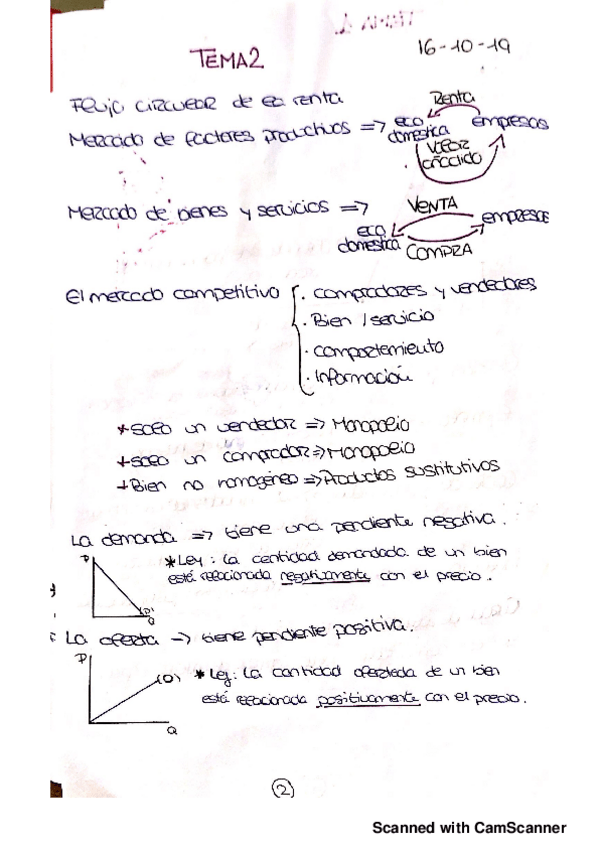 16-10-19
TEMA 2
Flujo circular de la renta
Renta
Mercado de factores productivos => eco domestica empresas
valor añadido
Mercado de bienes y servicios => VENTA
eco domestica empresas
COMPRA
El mercado competitivo { . compradores y vendedores
. Bien / servicio
. comportamiento
. Información
* solo un vendedor => Monopolio
+ solo un comprador => Monopolio
+ Bien no homogéneo => Productos sustitutivos
La demanda => tiene una pendiente negativa.
P
* Ley : La cantidad demandada de un bien
está relacionada negativamente con el precio.
(D)
Q
La oferta -> tiene pendiente positiva.
P
(O) * Ley: La cantidad ofertada de un bien
está relacionada positivamente con el precio.
Q
2
Scanned with CamScanner